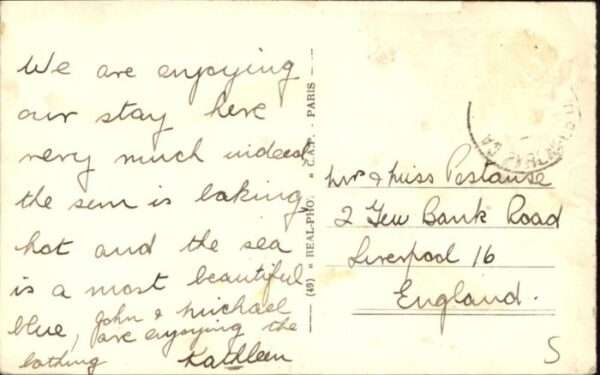 We are enjoying
our stay here
very much indeed
the sun is baking
hot and the sea
is a most beautiful
blue, John & Michael
are enjoying the
bathing Kathleen
(49) « REAL-PHO. » C.A.P. - PARIS
Mr & Miss
2 Yew Bank Road
Liverpool 16
England.
S